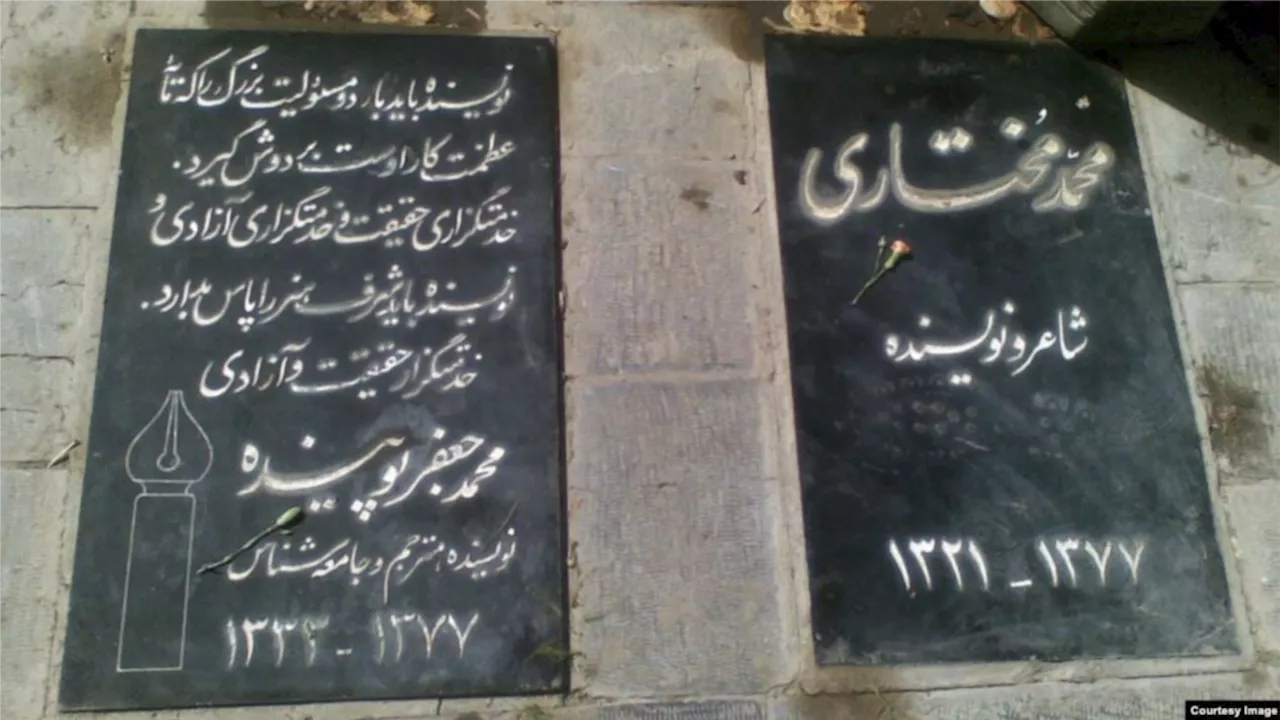 محمّد مُختاری
شاعر و نویسنده
۱۳۲۱ - ۱۳۷۷
نویسنده باید بار دو مسئولیت بزرگ را که
عظمت کار اوست بر دوش گیرد.
خدمتگزاری حقیقت و خدمتگزاری آزادی و
نویسنده باید شرف هنر را پاس بدارد.
خدمتگزار حقیقت و آزادی
محمد جعفر پوینده
نویسنده، مترجم و جامعه شناس
۱۳۳۳ - ۱۳۷۷
Courtesy Image